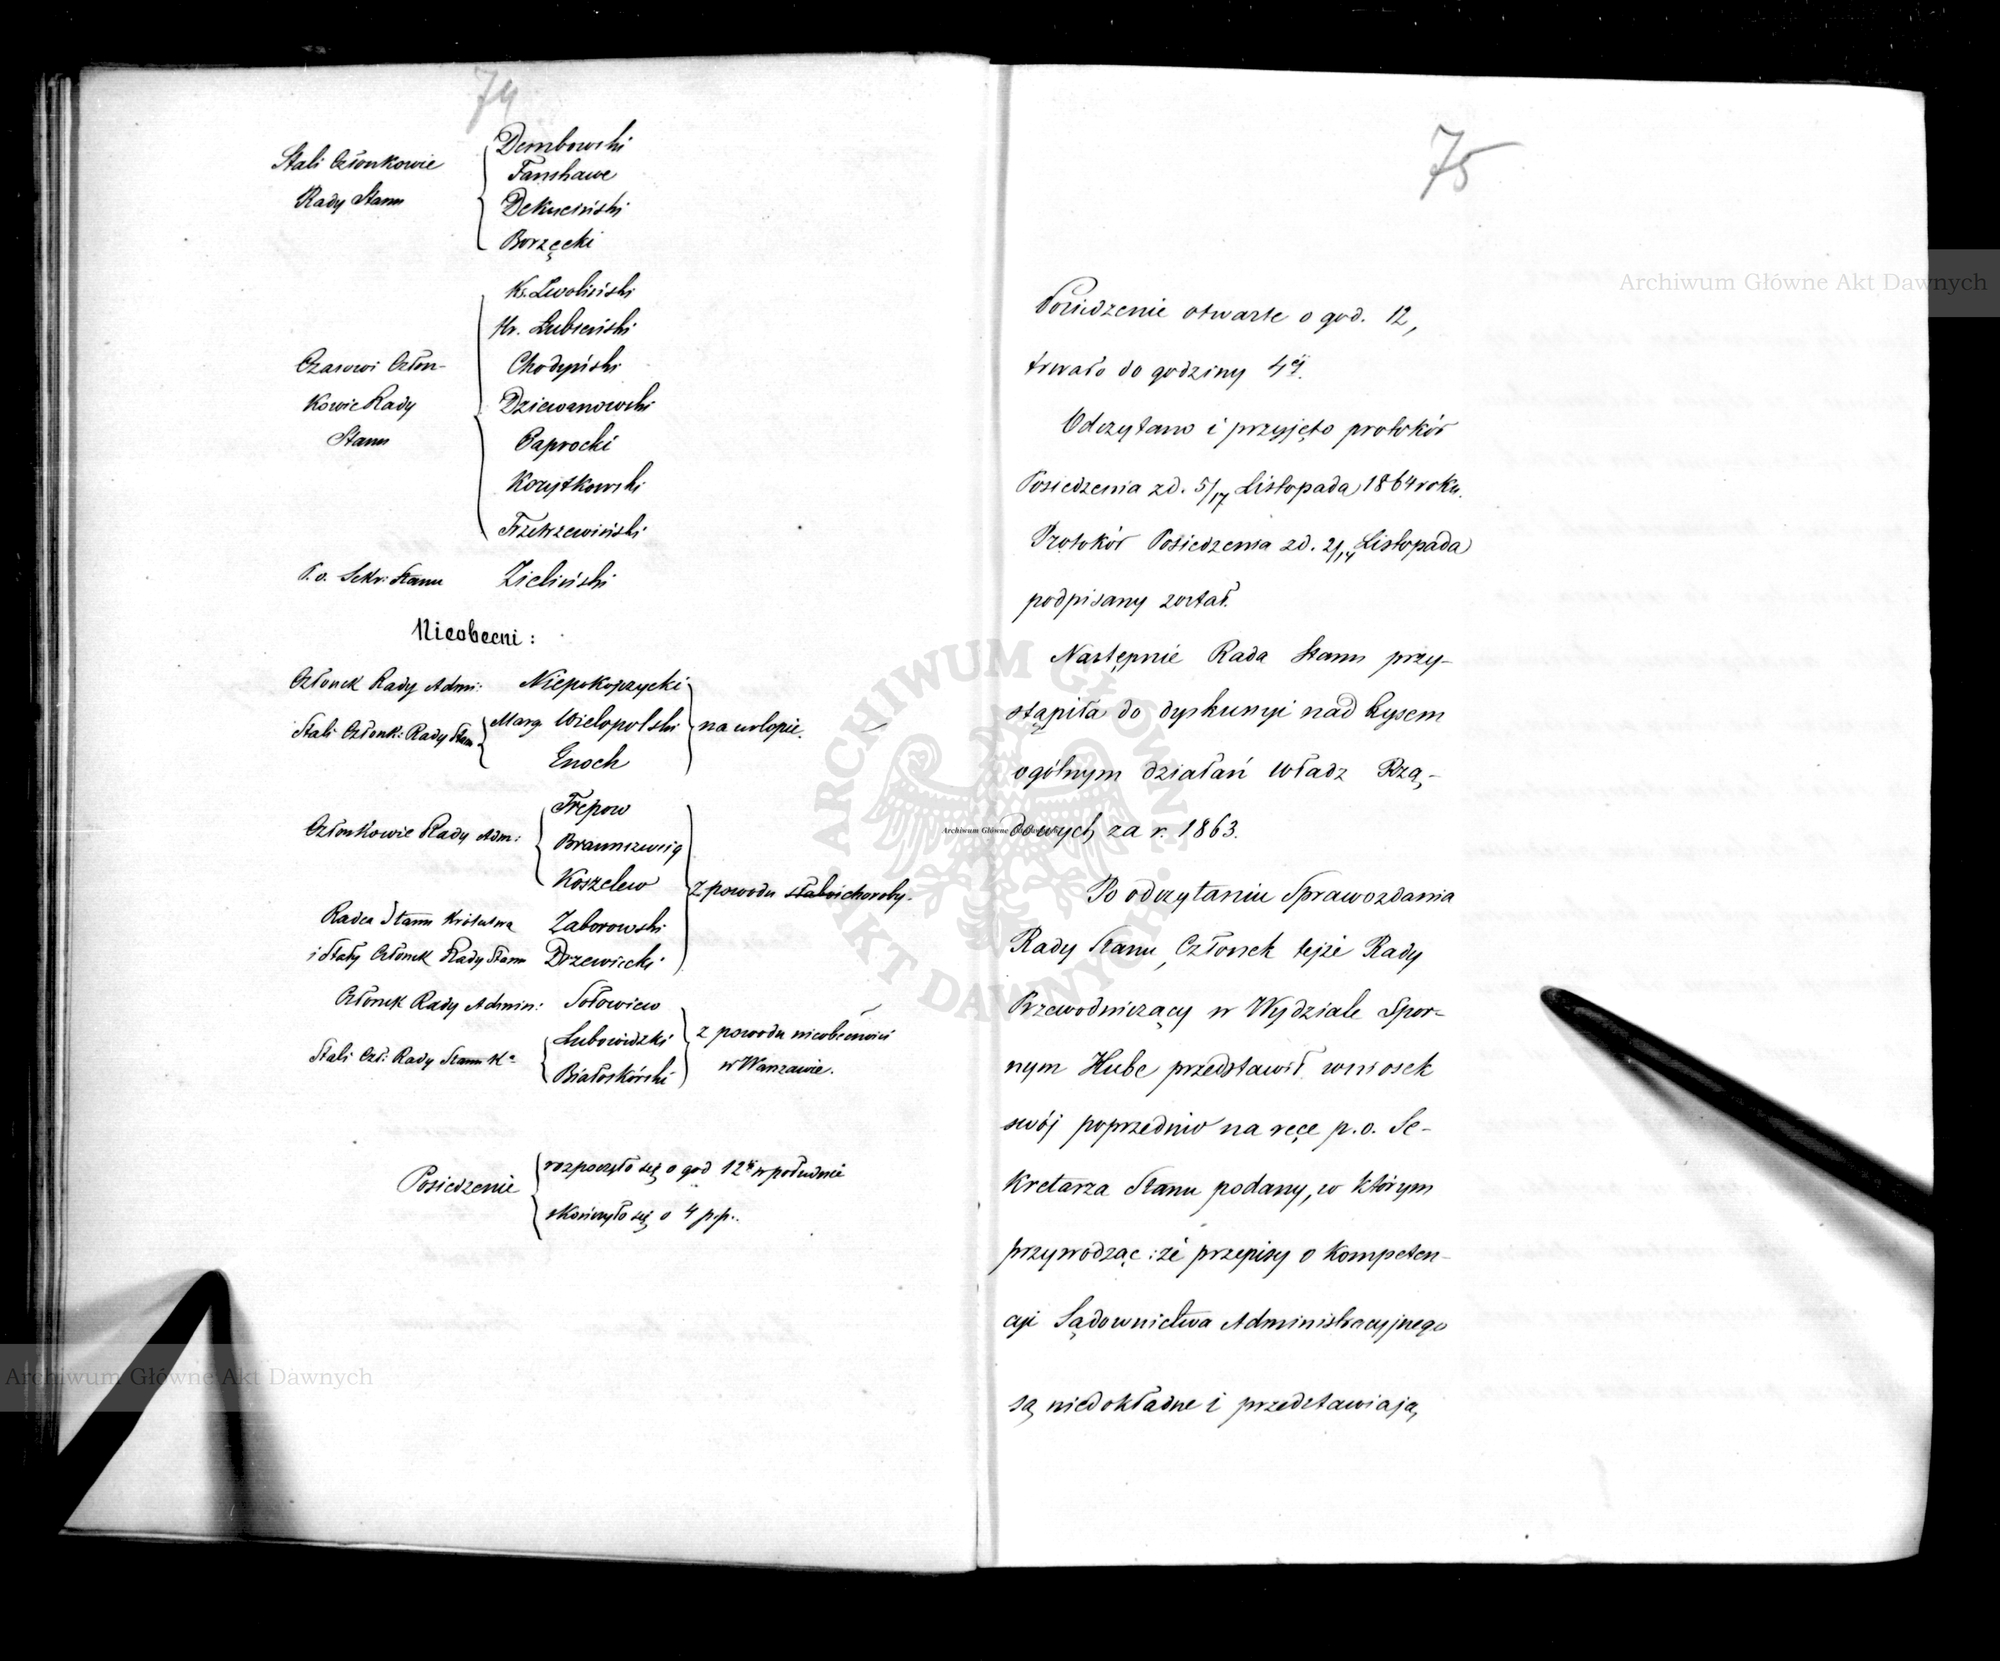 74
Stali Członkowie
Rady Stanu
Dembowski
Fanshawe
Dekuciński
Borzęcki
Czasowi Człon-
kowie Rady
Stanu
Ks. Zwoliński
Hr. Łubieński
Chodyński
Dziewanowski
Paprocki
Korytkowski
Trzetrzewiński
P.o. Sekr: Stanu Zieliński
Nieobecni:
Członek Rady Admi: Niepokojczycki
Stali Członk: Rady Stanu Marg Wielopolski na urlopie.
Enoch
Członkowie Rady Adm:
Trepow
Braunszweig
Koszelew
z powodu słabości choroby.
Radca Stanu Królestwa Zaborowski
i Stały Członek Rady Stanu Drzewiecki
Członek Rady Admin: Sołowiew
Stali Czł: Rady Stanu Ka
Łubowidzki
Białoskórski
z powodu nieobecności
w Warszawie.
Posiedzenie
rozpoczęło się o god 12ej w południe
skończyło się o 4 p.p.
75
Posiedzenie otwarte o god. 12,
trwało do godziny 4ej.
Odczytano i przyjęto protokół
Posiedzenia z d. 5/17 Listopada 1864 roku.
Protokół Posiedzenia z d. 2/14 Listopada
podpisany został.
Następnie Rada Stanu przy-
stąpiła do dyskusyi nad Rysem
ogólnym działań Władz Rzą-
dowych za r. 1863.
Po odczytaniu Sprawozdania
Rady Stanu, Członek tejże Rady
Przewodniczący w Wydziale Spor-
nym Hube przedstawił wniosek
swój poprzednio na ręce p.o. Se-
kretarza Stanu podany, w którym
przywodząc: że przepisy o kompeten-
cyi Sądownictwa Administracyjnego
są niedokładne i przedstawiają
Archiwum Główne Akt Dawnych
Archiwum Główne Akt Dawnych
ARCHIWUM GŁÓWNE AKT DAWNYCH